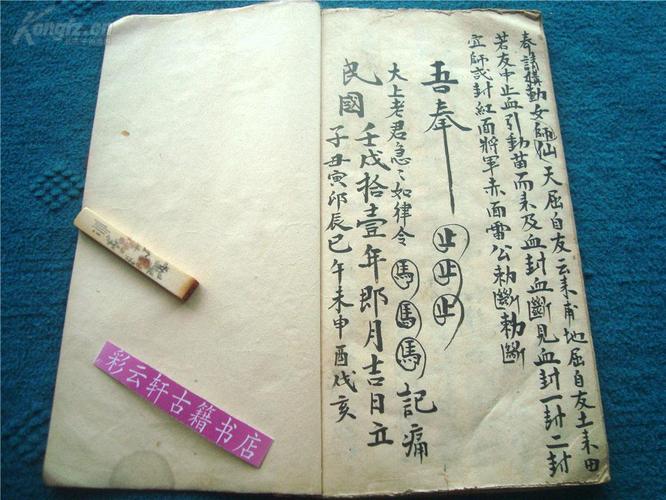 奉請橫動女師仙天屈自友云耒甫地屈自友土耒田
若友中止血引動苗而耒及血封血斷見血封一封二封
宜師或封紅面將軍赤面雷公勅斷勅斷
吾奉 止止止
大上老君急〻如律令 馬馬馬 記痛
民國壬戌拾壹年即月吉日立
子丑寅卯辰巳午未申酉戌亥
彩云轩古籍书店
Kongfz.cn